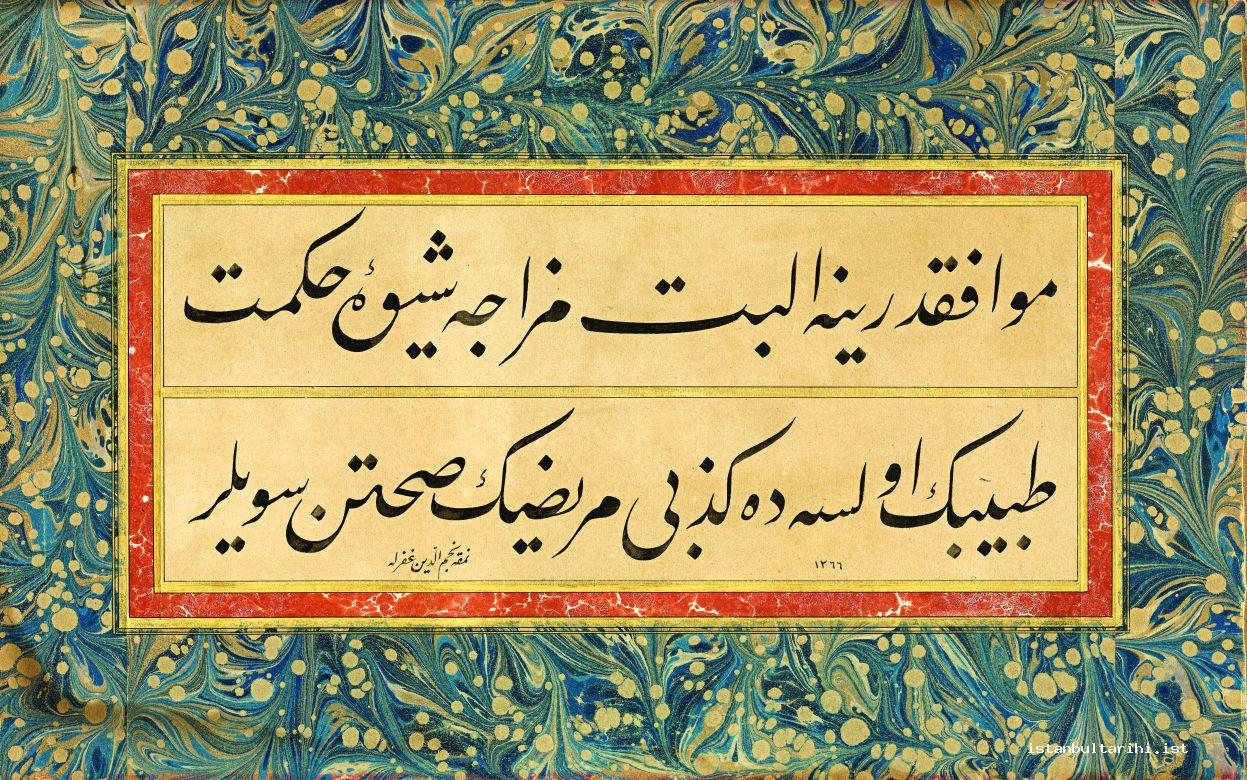 موافقدر ینه البت مزاجه شیوۀ حکمت
طبیبک اولسه ده کذبی مریضک صحتن سویلر
نمقه نجم الدین غفر له
١٣٦٦
istanbultarihi.ist